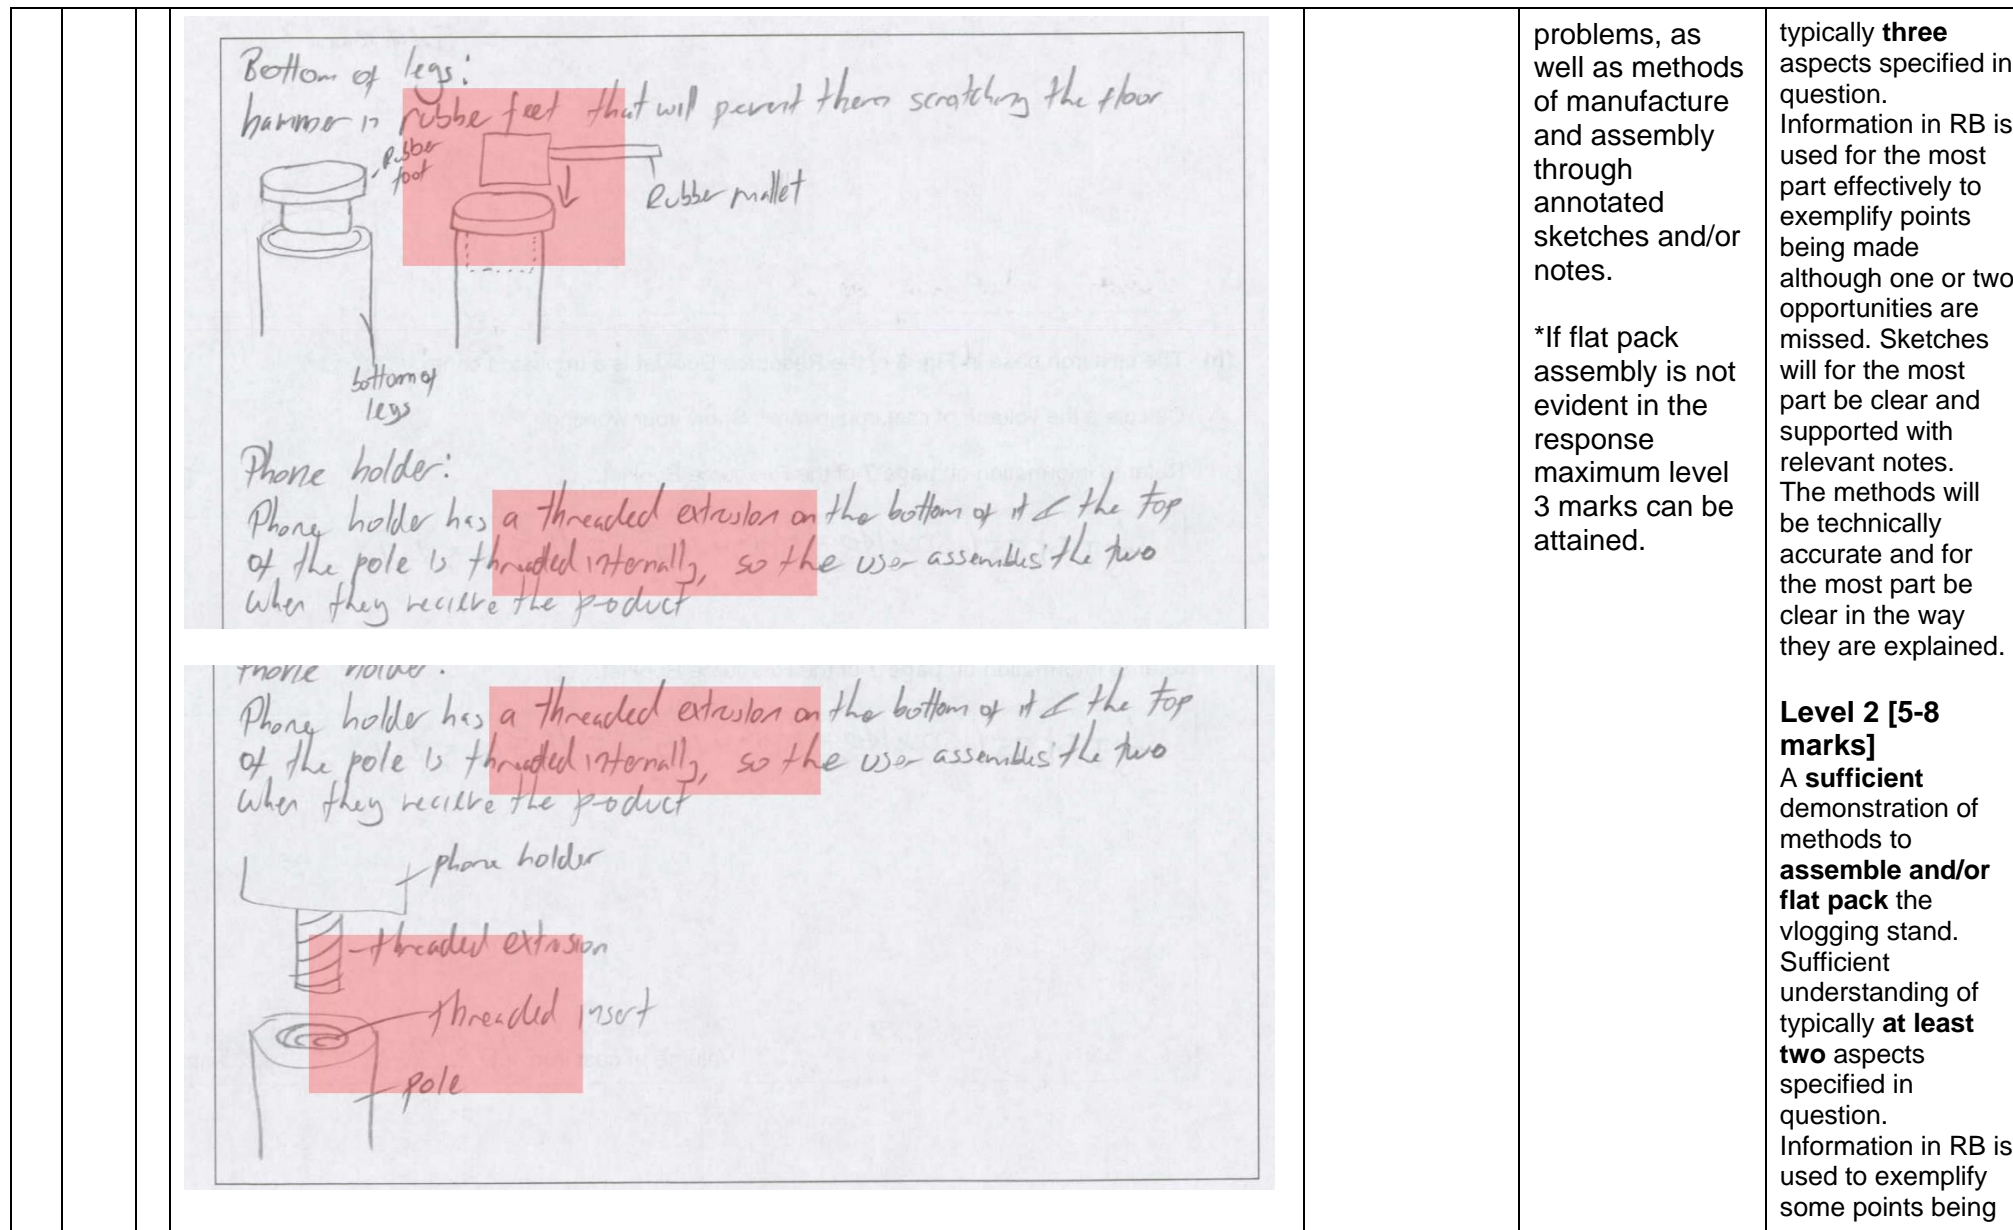 Bottom of legs:
hammer in rubbe feet that will pevent them scratching the floor
Rubber
foot
Rubber mallet
bottom of
legs
Phone holder:
Phone holder has a threaded extrusion on the bottom of it & the top
of the pole is threaded internally, so the user assembles the two
when they recieve the product
Phone holder:
Phone holder has a threaded extrusion on the bottom of it & the top
of the pole is threaded internally, so the user assembles the two
when they recieve the product
phone holder
threaded extrusion
threaded insert
pole
problems, as
well as methods
of manufacture
and assembly
through
annotated
sketches and/or
notes.
*If flat pack
assembly is not
evident in the
response
maximum level
3 marks can be
attained.
typically three
aspects specified in
question.
Information in RB is
used for the most
part effectively to
exemplify points
being made
although one or two
opportunities are
missed. Sketches
will for the most
part be clear and
supported with
relevant notes.
The methods will
be technically
accurate and for
the most part be
clear in the way
they are explained.
Level 2 [5-8
marks]
A sufficient
demonstration of
methods to
assemble and/or
flat pack the
vlogging stand.
Sufficient
understanding of
typically at least
two aspects
specified in
question.
Information in RB is
used to exemplify
some points being